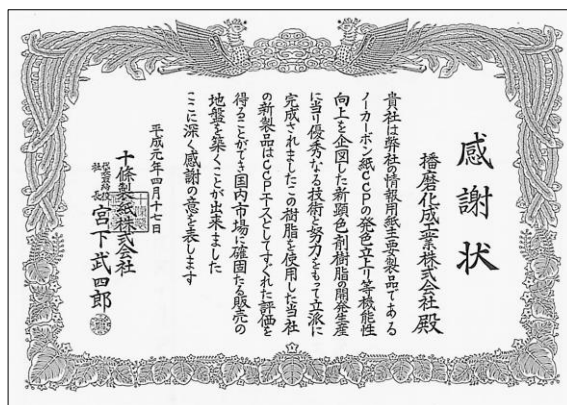 感謝状
播磨化成工業株式会社殿
貴社は弊社の情報用紙主要製品である
ノーカーボン紙CCPの発色立上り等機能性
向上を企図した新顕色剤樹脂の開発生産
に当り優秀なる技術と努力をもって立派に
完成されましたこの樹脂を使用した当社
の新製品はCCPエースとしてすぐれた評価を
得ることができ国内市場に確固たる販売の
地盤を築くことが出来ました
ここに深く感謝の意を表します
平成元年四月十七日
十條製紙株式会社
代表取締役
社長 宮下武四郎